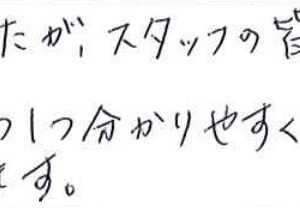 たが、スタッフの皆
つ1つ分かりやすく
す。